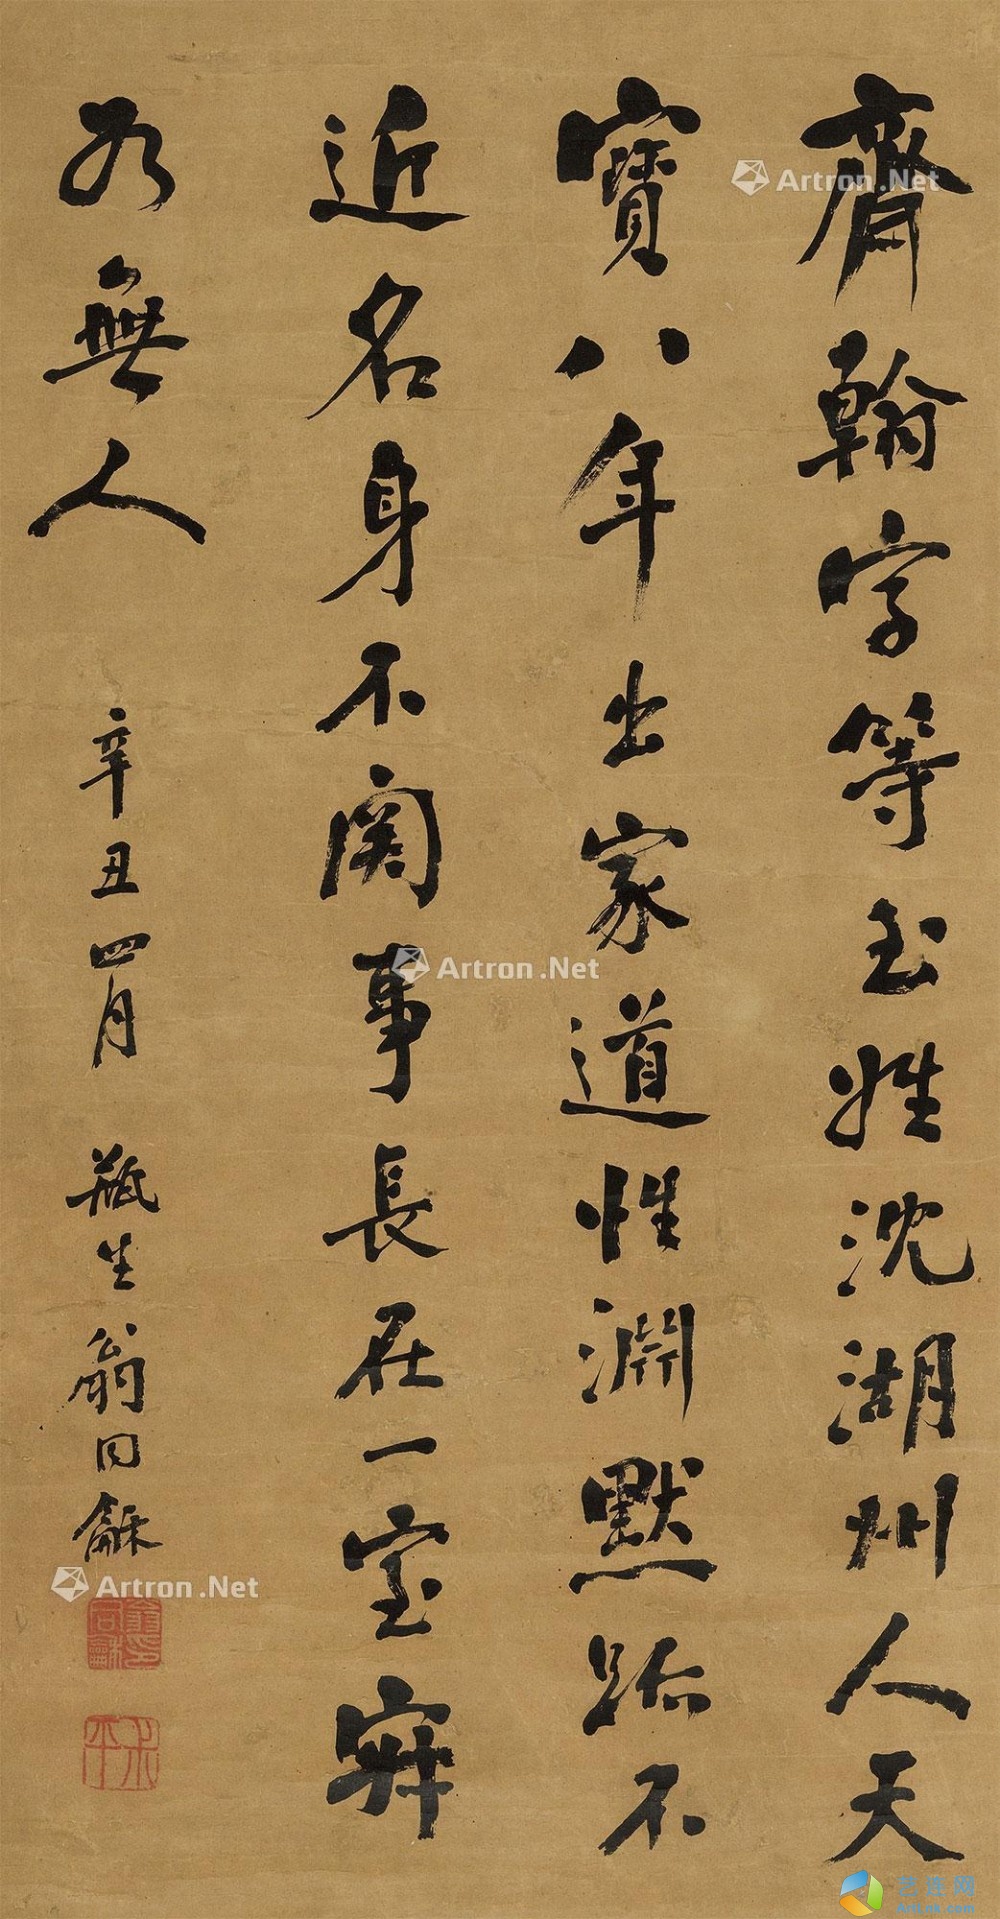 齊翰字等至姓沈湖州人天
寶八年出家道性淵默跡不
近名身不関事長在一室寂
若無人
辛丑四月 瓶生翁同龢
翁同龢印
叔平
Artron.Net
Artron.Net
Artron.Net
艺连网
ArtLnk.com